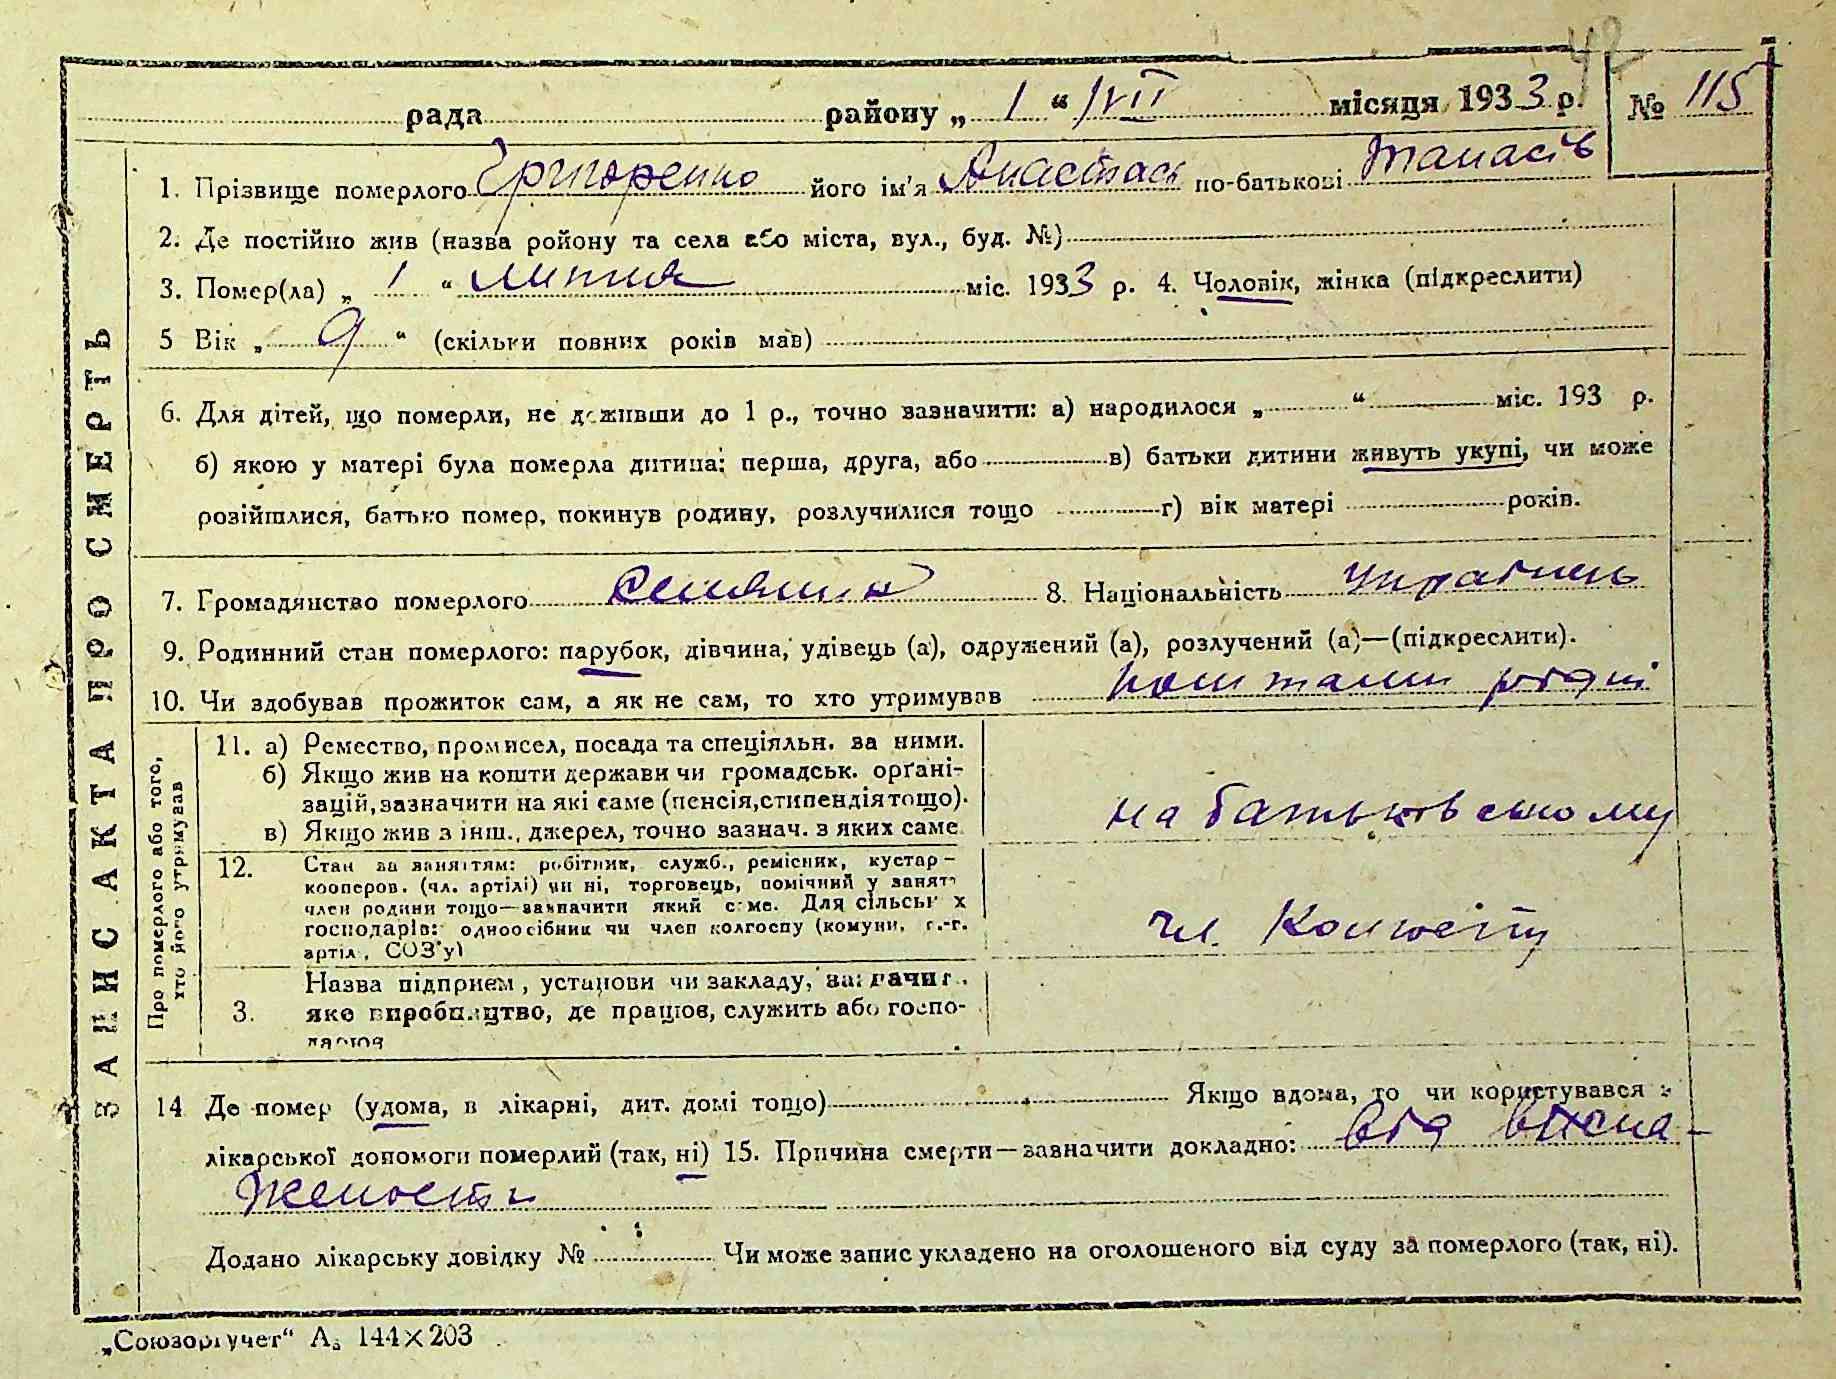 42
рада района „ 1 “ /VII місяця 1933 р. № 115
1. Прізвище померлого Григоренко його ім'я Анастась по-батькові Танасів
2. Де постійно жив (назва ройону та села або міста, вул., буд. №)
3. Помер(ла) „ 1 “ липня міс. 1933 р. 4. Чоловік, жінка (підкреслити)
5 Вік „ 9 “ (скільки повних років мав)
6. Для дітей, що померли, не доживши до 1 р., точно зазначити: а) народилося „ “ міс. 193 р.
б) якою у матері була померла дитина: перша, друга, або в) батьки дитини живуть укупі, чи може
розійшлися, батько помер, покинув родину, розлучилися тощо г) вік матері років.
7. Громадянство померлого селянин 8. Національність Українець
9. Родинний стан померлого: парубок, дівчина, удівець (а), одружений (а), розлучений (а)—(підкреслити).
10. Чи здобував прожиток сам, а як не сам, то хто утримував коштами рідні
ЗАПИС АКТА ПРО СМЕРТЬ
Про померлого або того,
хто його утримував
11. а) Ремество, промисел, посада та спеціяльн. за ними.
б) Якщо жив на кошти держави чи громадськ. орґані-
зацій, зазначити на які саме (пенсія, стипендія тощо).
в) Якщо жив з інш., джерел, точно зазнач. з яких саме
на батьковському
12. Стан за заняттям: робітник, служб., ремісник, кустар —
кооперов. (чл. артілі) чи ні, торговець, помічний у занят
член родини тощо—зазначити який саме. Для сільськ х
господарів: одноосібник чи член колгоспу (комуни, с.-г.
артіл, СОЗ'у)
чл. Колгоспу
Назва підприєм, установи чи закладу, зазначит.
3. яке виробництво, де працюв, служить або госпо-
дарює
14 Де помер (удома, в лікарні, дит. домі тощо) Якщо вдома, то чи користувався з
лікарської допомоги померлий (так, ні) 15. Причина смерти—зазначити докладно: від висна-
жености
Додано лікарську довідку № Чи може запис укладено на оголошеного від суду за померлого (так, ні).
„Союзоргучет“ А₅ 144×203